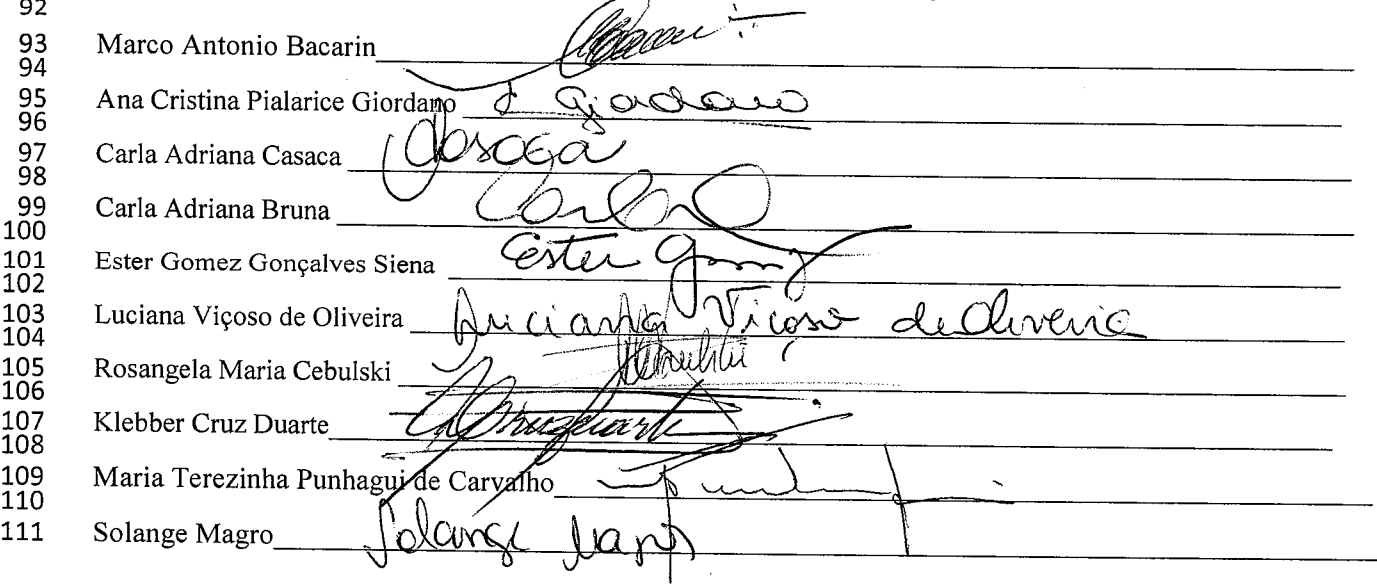 92
93 Marco Antonio Bacarin
94
95 Ana Cristina Pialarice Giordano Giordano
96
97 Carla Adriana Casaca
98
99 Carla Adriana Bruna
100
101 Ester Gomez Gonçalves Siena Ester Gomez
102
103 Luciana Viçoso de Oliveira Luciana Viçoso de Oliveira
104
105 Rosangela Maria Cebulski
106
107 Klebber Cruz Duarte
108
109 Maria Terezinha Punhagui de Carvalho
110
111 Solange Magro Solange Magro